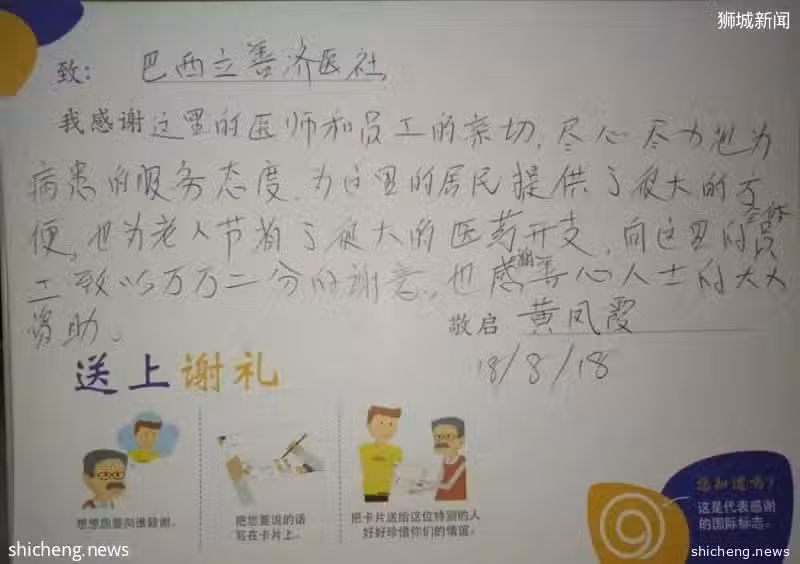 狮城新闻
致： 巴西立善济医社
我感谢这里的医师和员工的亲切，尽心尽力地为
病患的服务态度，为这里的居民提供了很大的方
便，也为老人节省了很大的医药开支，向这里的全体员
工致以万万二分的谢意，也感谢善心人士的大力
资助。
敬启 黄凤霞
18/8/18
送上谢礼
想想您要向谁致谢。
把您要说的话
写在卡片上。
把卡片送给这位特别的人
好好珍惜你们的情谊。
您知道吗？
这是代表感谢
的国际标志。
shicheng.news
shicheng.news